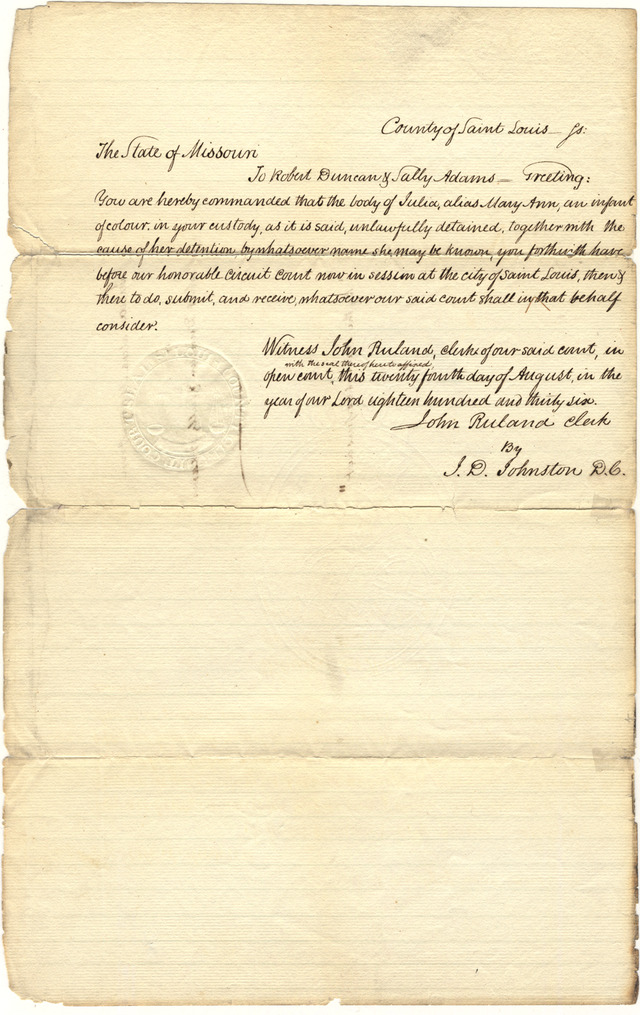 County of Saint Louis — ss:
The State of Missouri
To Robert Duncan & Sally Adams — Greeting:
You are hereby commanded that the body of Julia, alias Mary Ann, an infant
of colour, in your custody, as it is said, unlawfully detained, together with the
cause of her detention by whatsoever name she may be known, you forthwith have
before our honorable Circuit Court now in session at the city of Saint Louis, then &
there to do, submit, and receive, whatsoever our said court shall in that behalf
consider.
Witness John Ruland, clerk of our said court, in
with the seal thereof hereto affixed
open court, this twenty fourth day of August, in the
year of our Lord eighteen hundred and thirty six.
John Ruland Clerk
By
J. D. Johnston D.C.